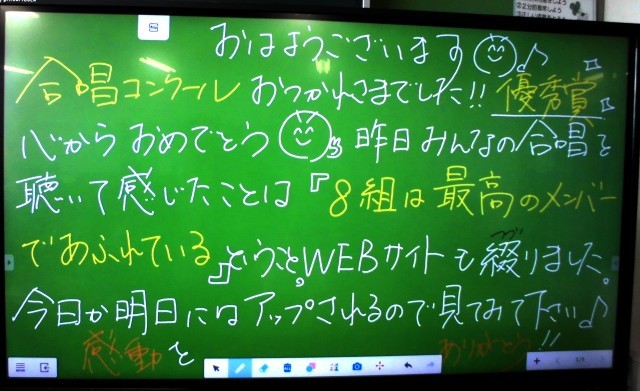 おはようございます♪
合唱コンクールおつかれさまでした!!優秀賞
心からおめでとう 昨日みんなの合唱を
聴いて感じたことは『8組は最高のメンバー
であふれている』ということ。WEBサイトも綴りました。
今日か明日にはアップされるので見てみて下さい♪
感動を ありがとう!!